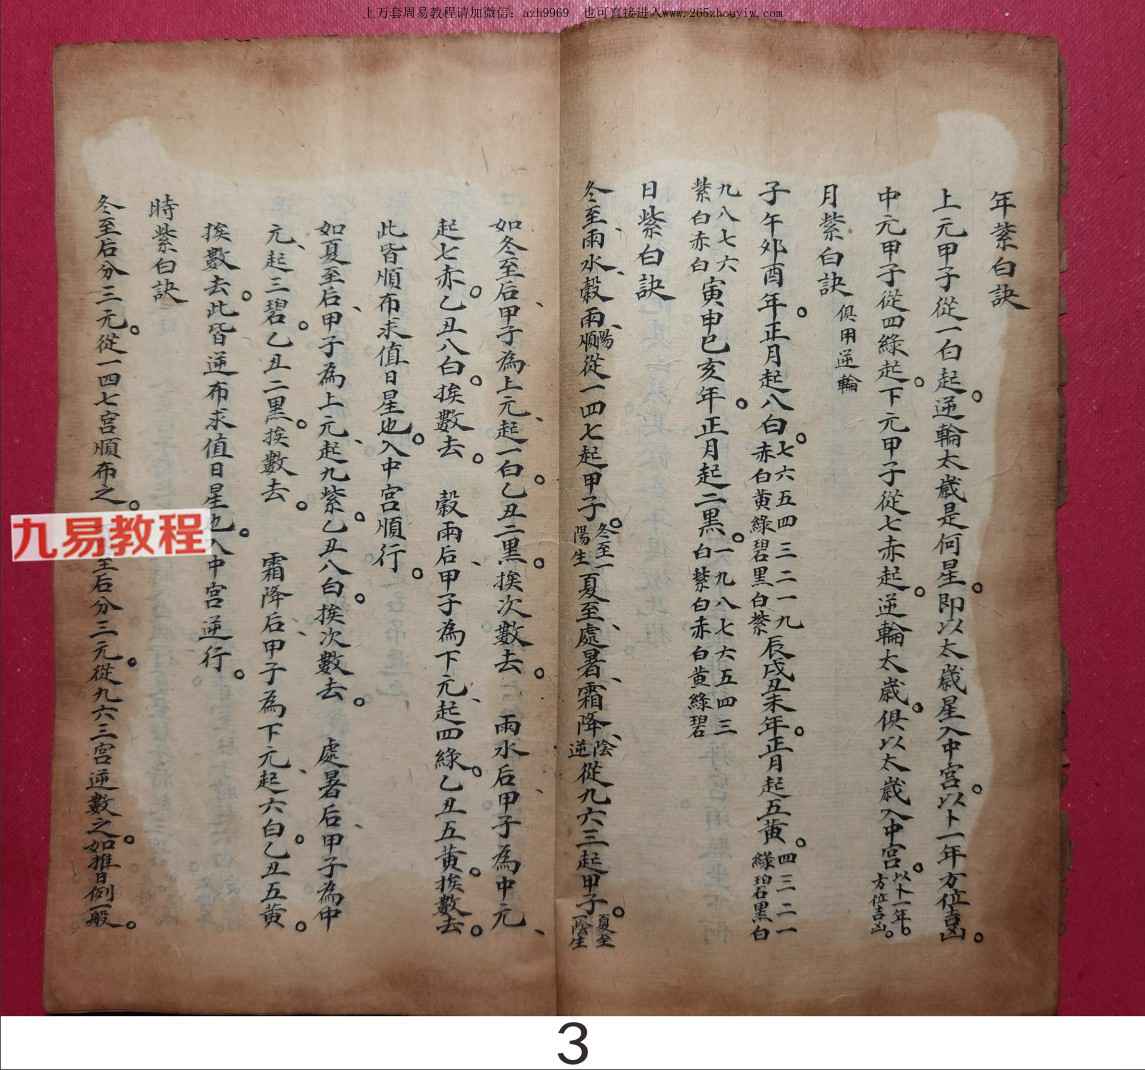 上万套周易教程请加微信：azh9969　也可直接进入www.265zhouyiw.com
年紫白訣
上元甲子從一白起。逆輪太歲是何星。即以太歲星入中宮。以卜一年方位吉凶。
中元甲子從四綠起。下元甲子從七赤起。逆輪太歲。俱以太歲入中宮。以卜一年。方位吉凶。
月紫白訣 俱用逆輪
子午卯酉年。正月起八白。七六五四三二一九 赤白黃綠碧黑白紫 辰戌丑未年。正月起五黃。四三二一 綠碧黑白
九八七六 紫白赤白 寅申巳亥年。正月起二黑。一九八七六五四三 白紫白赤白黃綠碧
日紫白訣
冬至、雨水、穀雨、陽順從一四七起甲子。冬至一陽生 夏至、處暑、霜降、陰逆從九六三起甲子。夏至一陰生
如冬至后、甲子為上元、起一白。乙丑二黑。挨次數去。 雨水后甲子為中元、
起七赤。乙丑八白。挨數去。 穀雨后甲子為下元、起四綠。乙丑五黃。挨數去。
此皆順布求值日星也。入中宮順行。
如夏至后、甲子為上元、起九紫。乙丑八白。挨次數去。 處暑后甲子為中
元、起三碧。乙丑二黑。挨數去。 霜降后、甲子為下元、起六白。乙丑五黃。
挨數去。此皆逆布求值日星也。入中宮逆行。
時紫白訣
冬至后分三元。從一四七宮順布之。至后分三元。從九六三宮逆數之。如推日例一般。
九易教程
3